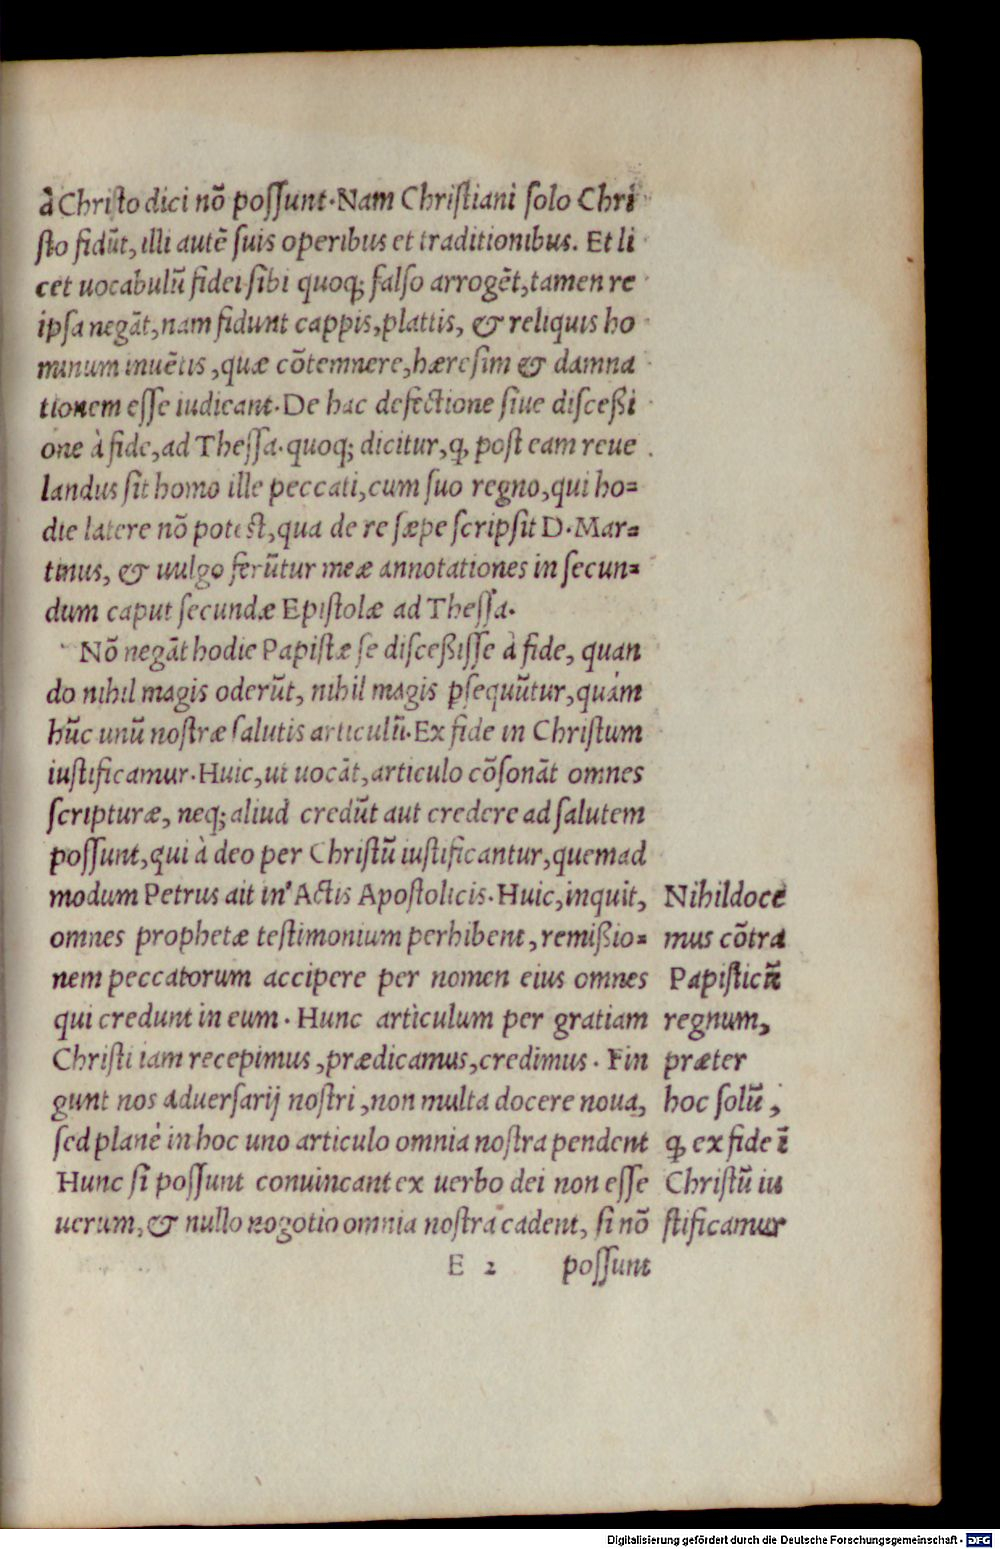 à Christo dici nõ possunt. Nam Christiani solo Chri
sto fidũt, illi autẽ suis operibus et traditionibus. Et li
cet uocabulũ fidei sibi quoq; falso arrogẽt, tamen re
ipsa negãt, nam fidunt cappis, plattis, & reliquis ho
minum inuẽtis, quæ cõtemnere, hæresim & damna
tionem esse iudicant. De hac defectione siue disceßi
one à fide, ad Thessa. quoq; dicitur, ꝙ post eam reue
landus sit homo ille peccati, cum suo regno, qui ho=
die latere nõ potest, qua de re sæpe scripsit D. Mar=
tinus, & uulgo ferũtur meæ annotationes in secun=
dum caput secundæ Epistolæ ad Thessa.
Nõ negãt hodie Papistæ se disceßisse à fide, quan
do nihil magis oderũt, nihil magis ꝑsequũtur, quàm
hũc unũ nostræ salutis articulũ. Ex fide in Christum
iustificamur. Huic, ut uocãt, articulo cõsonãt omnes
scripturæ, neq; aliud credũt aut credere ad salutem
possunt, qui à deo per Christũ iustificantur, quemad
modum Petrus ait in Actis Apostolicis. Huic, inquit,
omnes prophetæ testimonium perhibent, remißio=
nem peccatorum accipere per nomen eius omnes
qui credunt in eum. Hunc articulum per gratiam
Christi iam recepimus, prædicamus, credimus. Fin
gunt nos aduersarij nostri, non multa docere noua,
sed planè in hoc uno articulo omnia nostra pendent
Hunc si possunt conuincant ex uerbo dei non esse
uerum, & nullo nogotio omnia nostra cadent, si nõ
E 2 possunt
Nihil doce
mus cõtra
Papisticũ
regnum,
præter
hoc solũ,
ꝙ ex fide ĩ
Christũ iu
stificamur
Digitalisierung gefördert durch die Deutsche Forschungsgemeinschaft - DFG